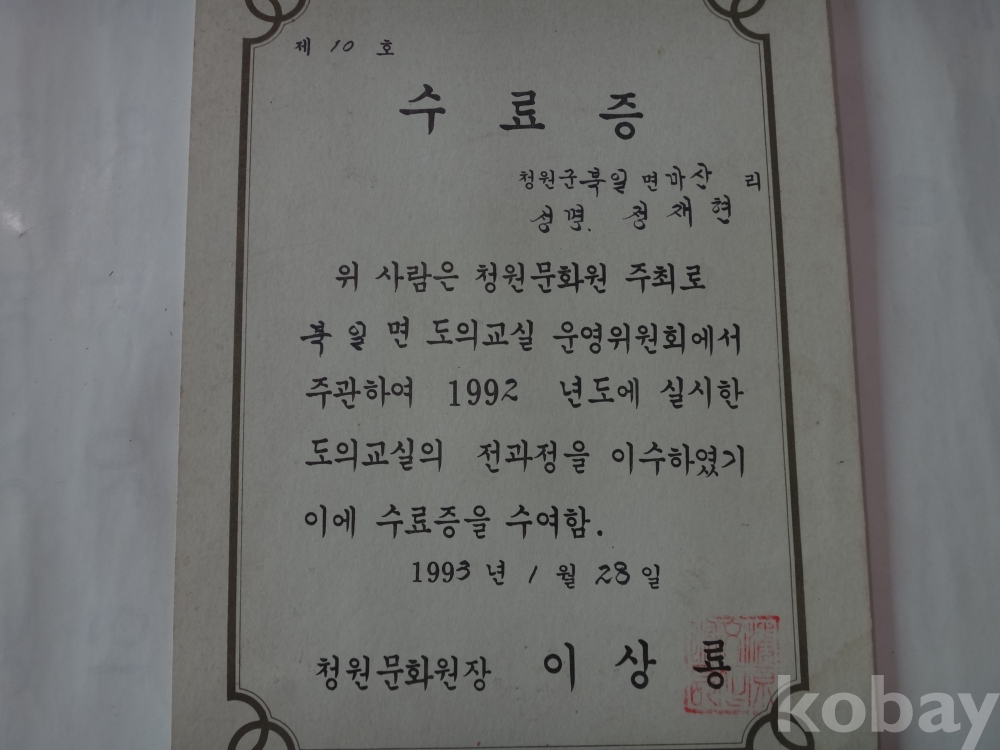 제 10 호
수 료 증
청원군 북일 면 마산 리
성명. 정재현
위 사람은 청원문화원 주최로
북 일 면 도의교실 운영위원회에서
주관하여 1992 년도에 실시한
도의교실의 전과정을 이수하였기
이에 수료증을 수여함.
1993 년 1 월 28 일
청원문화원장 이 상 룡
kobay